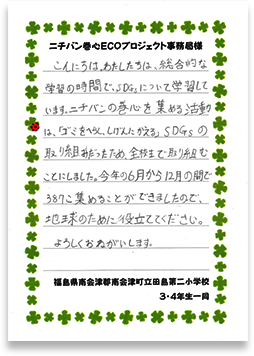 ニチバン巻心ECOプロジェクト事務局様
こんにちは。わたしたちは、総合的な
学習の時間で、SDGsについて学習して
います。ニチバンの巻心を集める活動
は、「ごみをへらし、しげんに変える」SDGsの
取り組みだったため、全校生で取り組む
ことにしました。今年の6月から12月の間で
387こ集めることができましたので、
地球のために役立ててください。
よろしくおねがいします。
福島県南会津郡南会津町立田島第二小学校
3・4年生一同